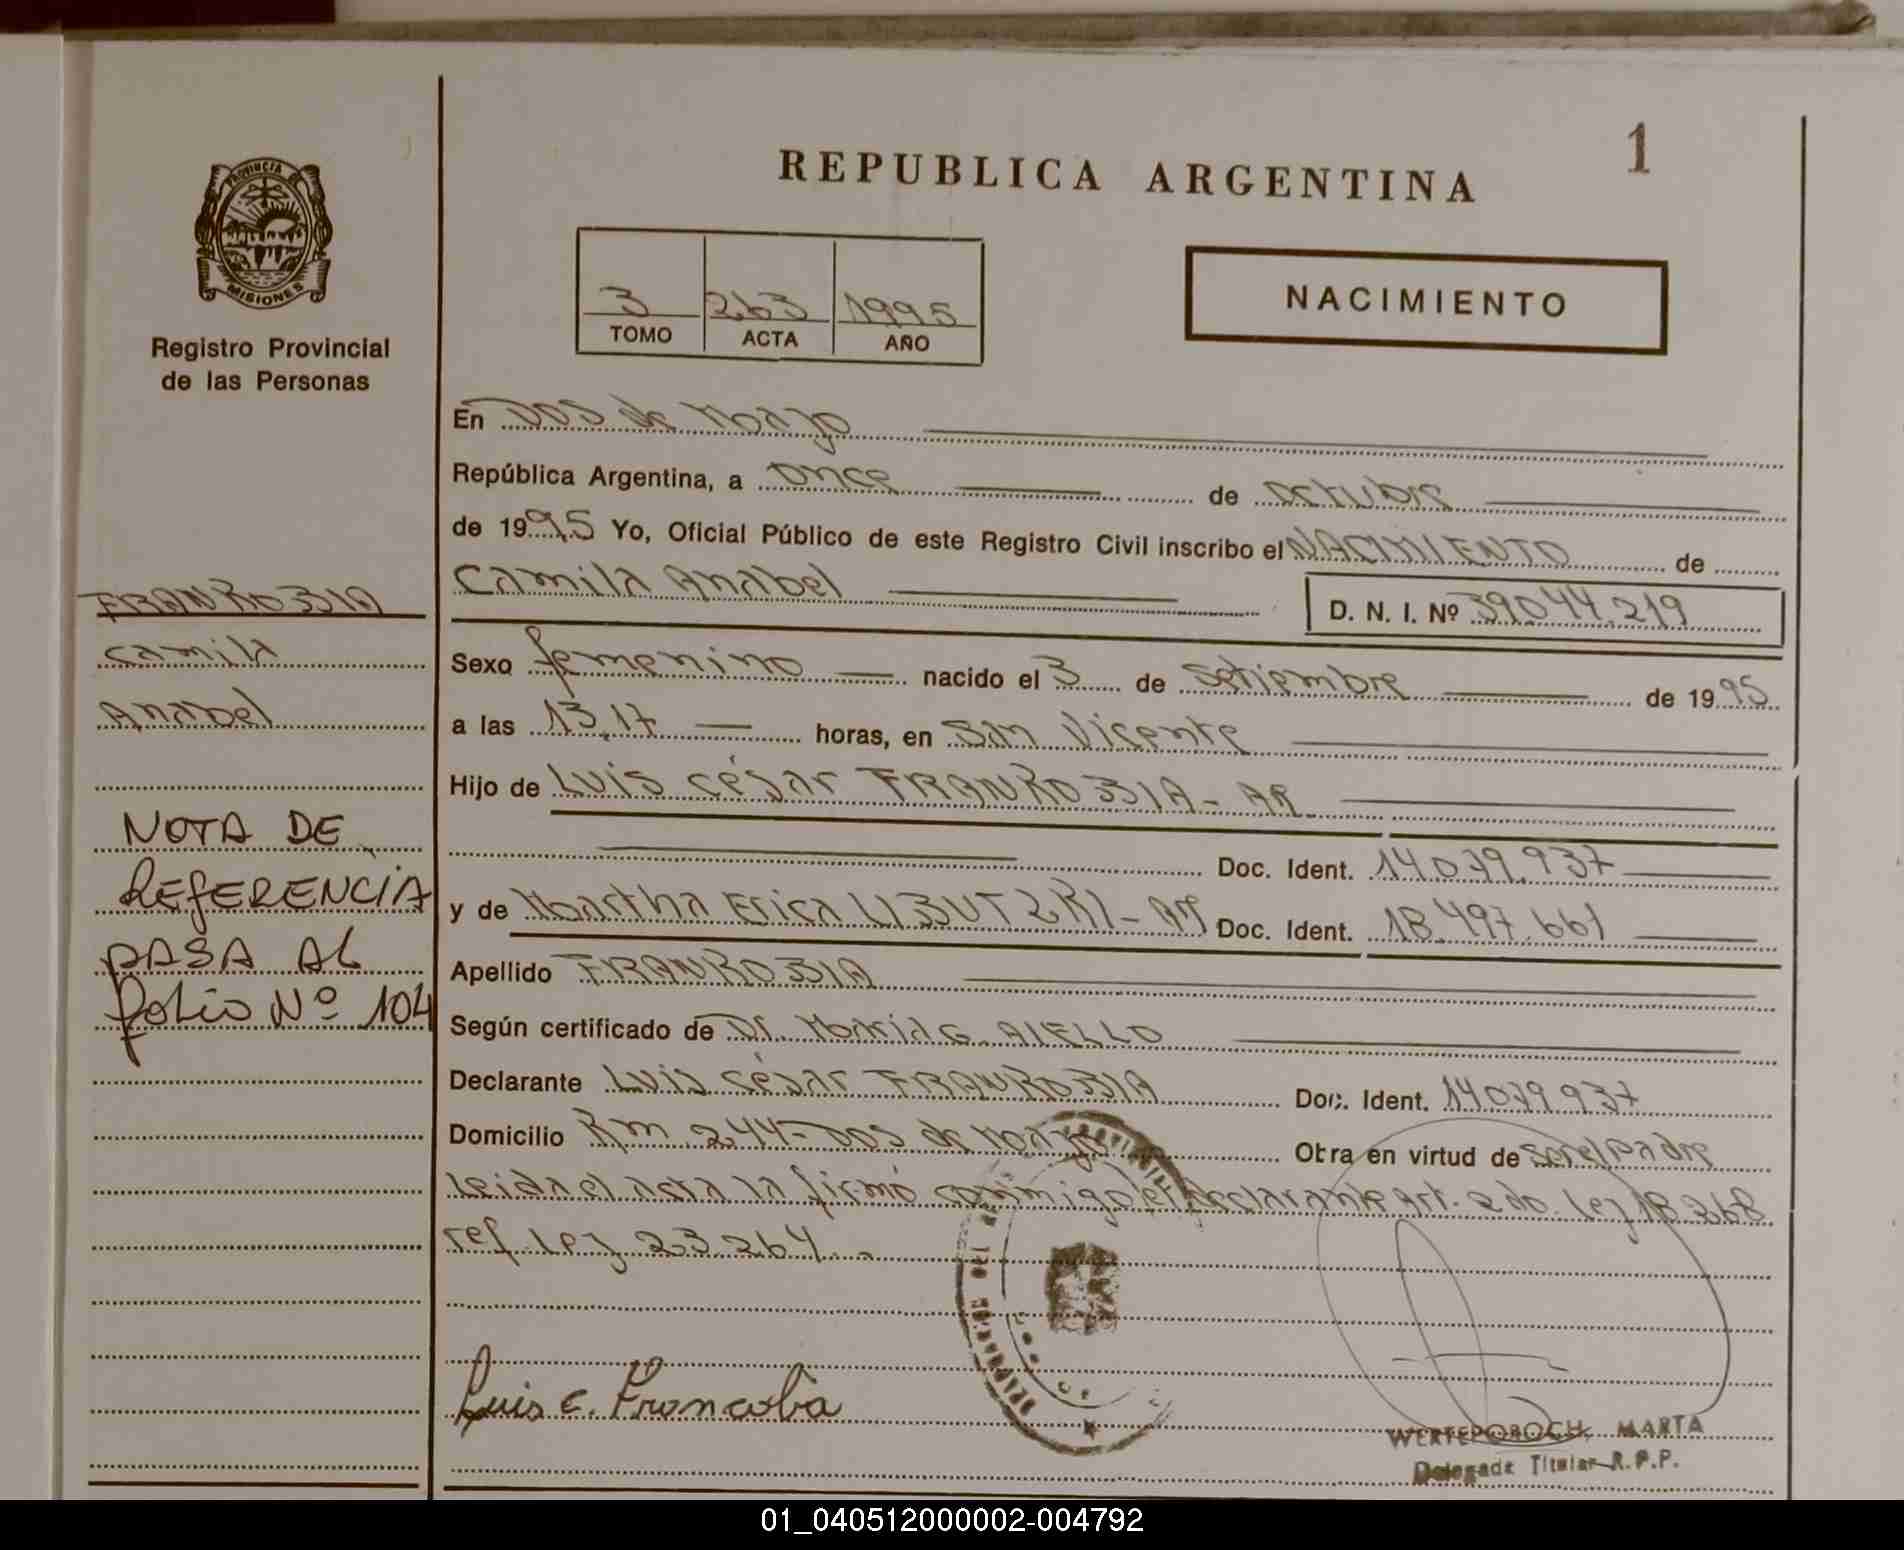 1
REPUBLICA ARGENTINA
PROVINCIA DE
MISIONES
Registro Provincial
de las Personas
3 263 1995
TOMO ACTA AÑO
NACIMIENTO
En Dos de Mayo
República Argentina, a once de octubre
de 1995 Yo, Oficial Público de este Registro Civil inscribo el NACIMIENTO de
Camila Anabel D. N. I. Nº 39.044.219
Sexo femenino nacido el 3 de setiembre de 1995
a las 13,17 horas, en San Vicente
Hijo de Luis César - AR
Doc. Ident. 14.079.937
y de Martha Erica Doc. Ident. 18.497.661
Apellido
Según certificado de Dr. G. AIELLO
Declarante Luis César Doc. Ident. 14.079.937
Domicilio Km 244 - Dos de Mayo Obra en virtud de ser el padre
Leida el acta la firmó conmigo el declarante art. 2do. Ley 18.268
ref. Ley 23.264.
Camila
Anabel
NOTA DE
REFERENCIA
PASA AL
folio Nº 104
Luis C.
MARTA
Delegada Titular R.P.P.
01_040512000002-004792